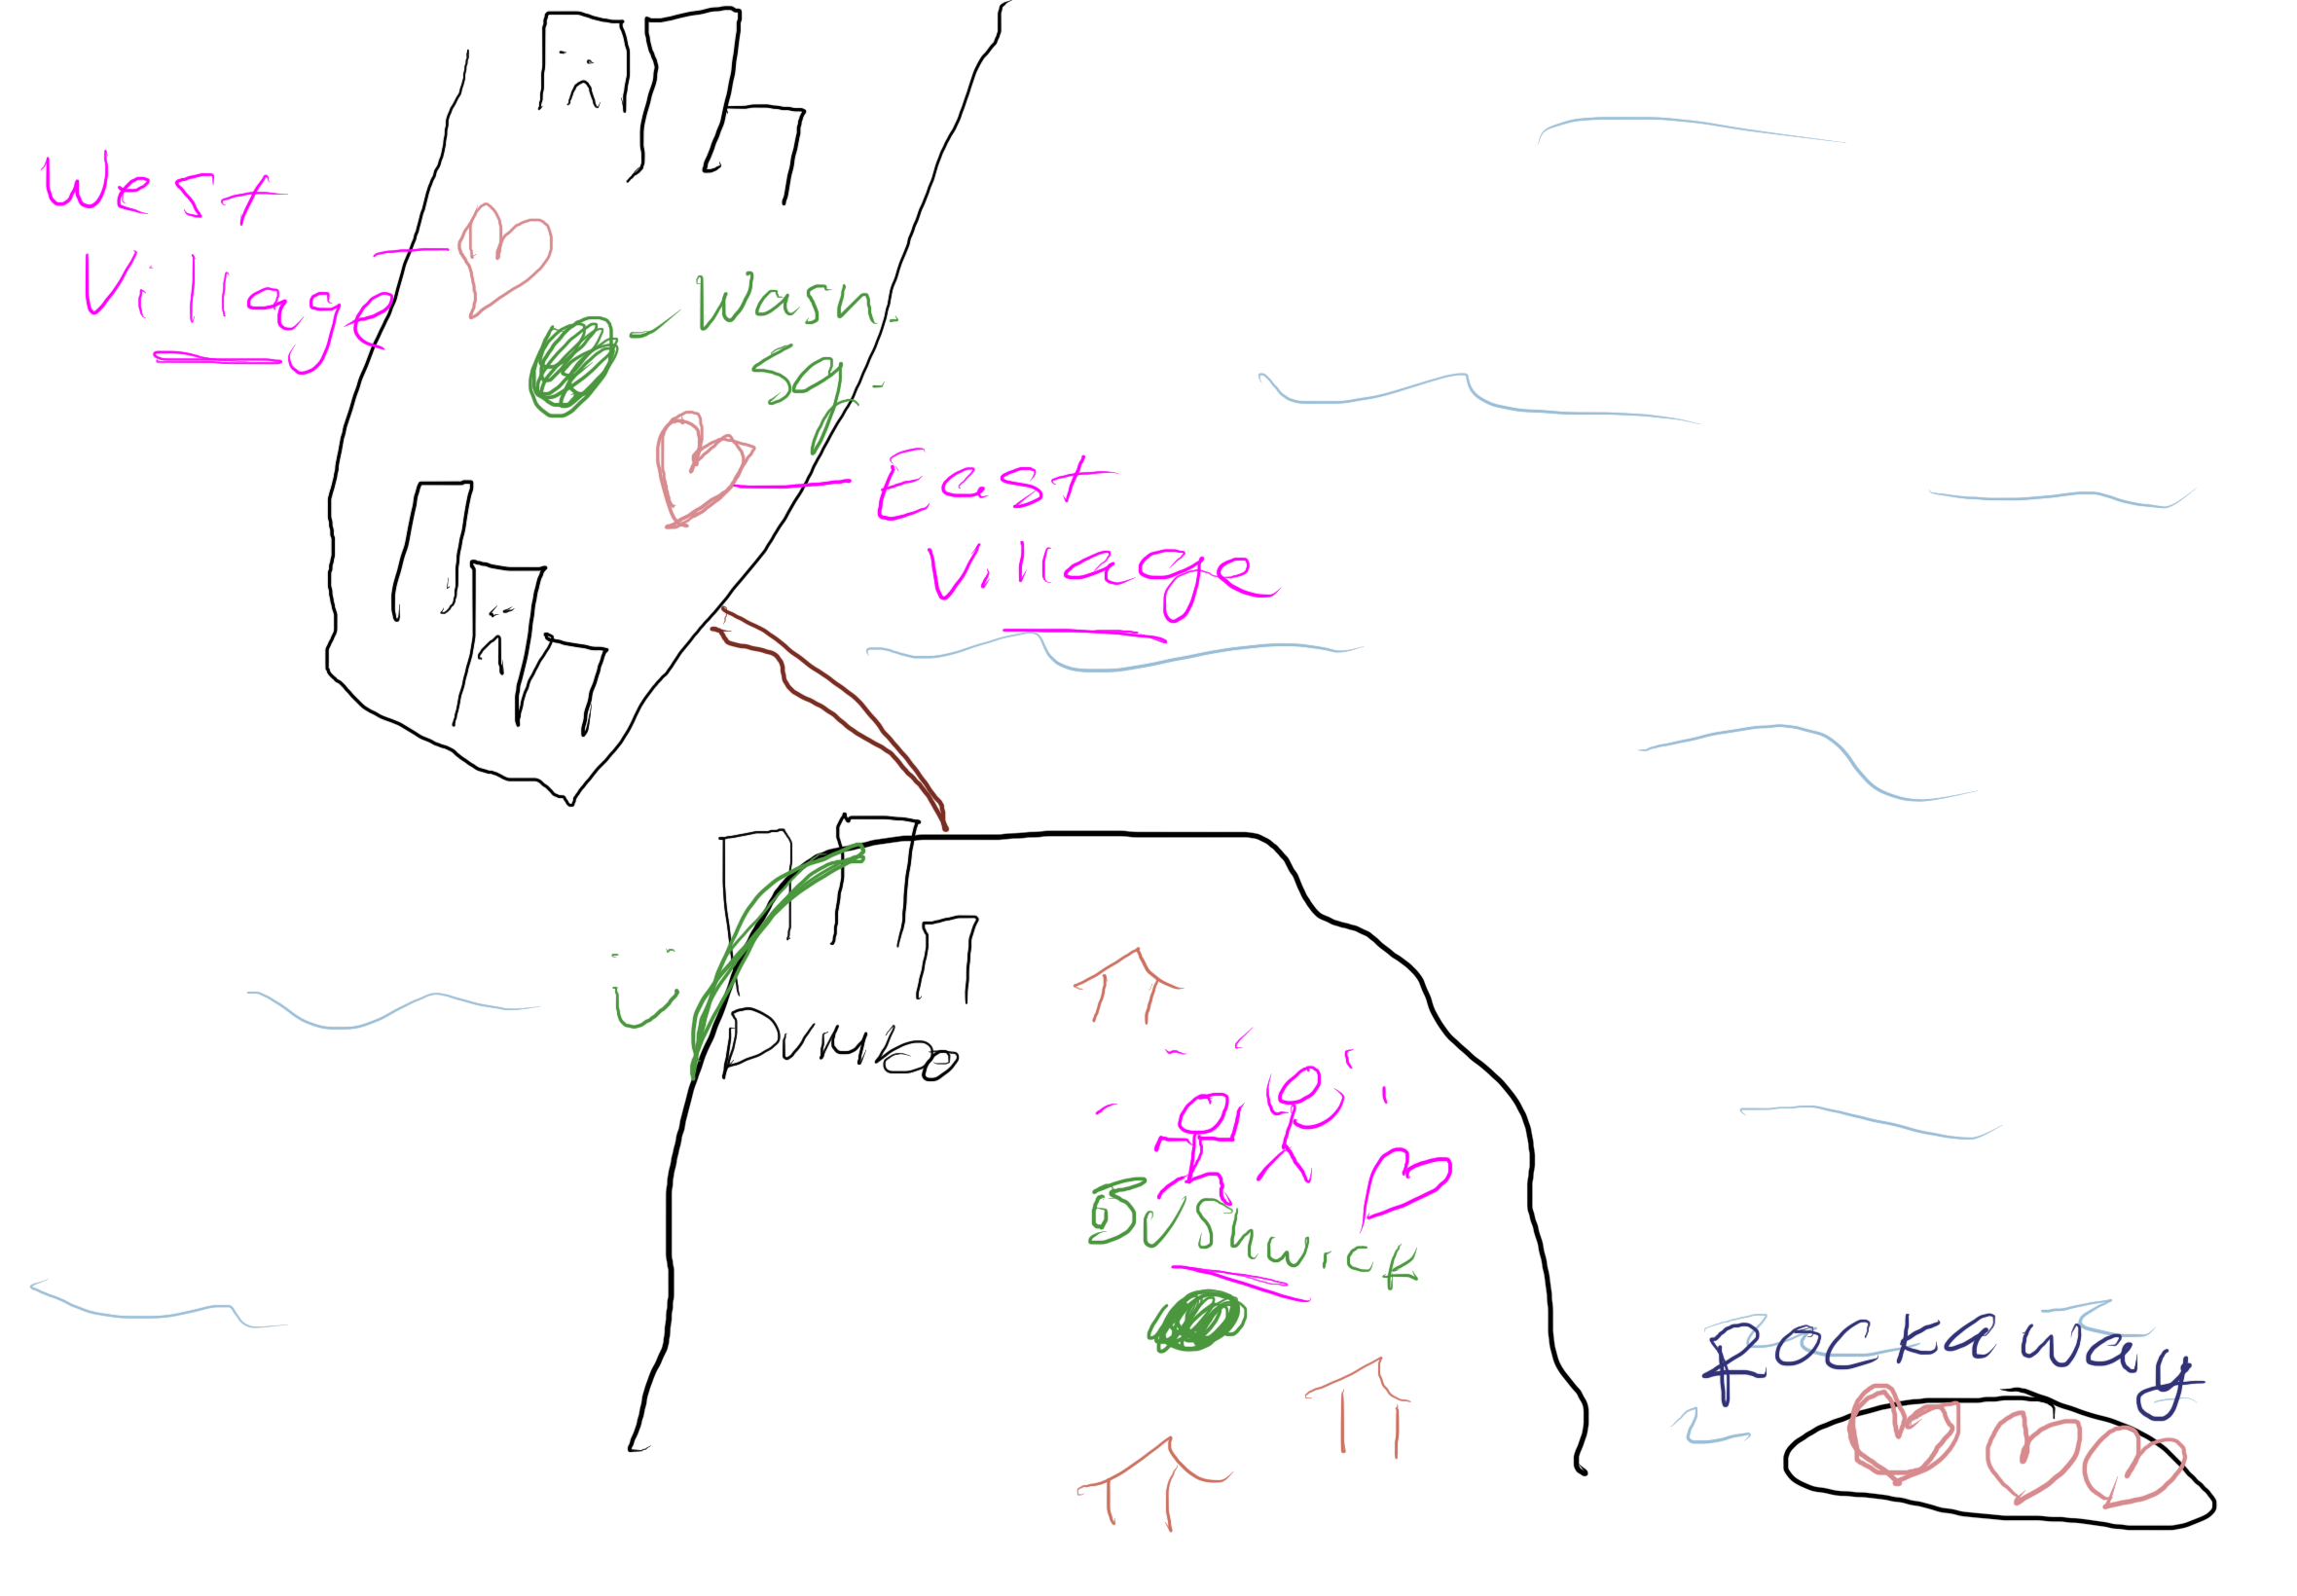 West
Village
Wash.
Sq.
East
Village
Dumbo
Bushwick
Rockaway